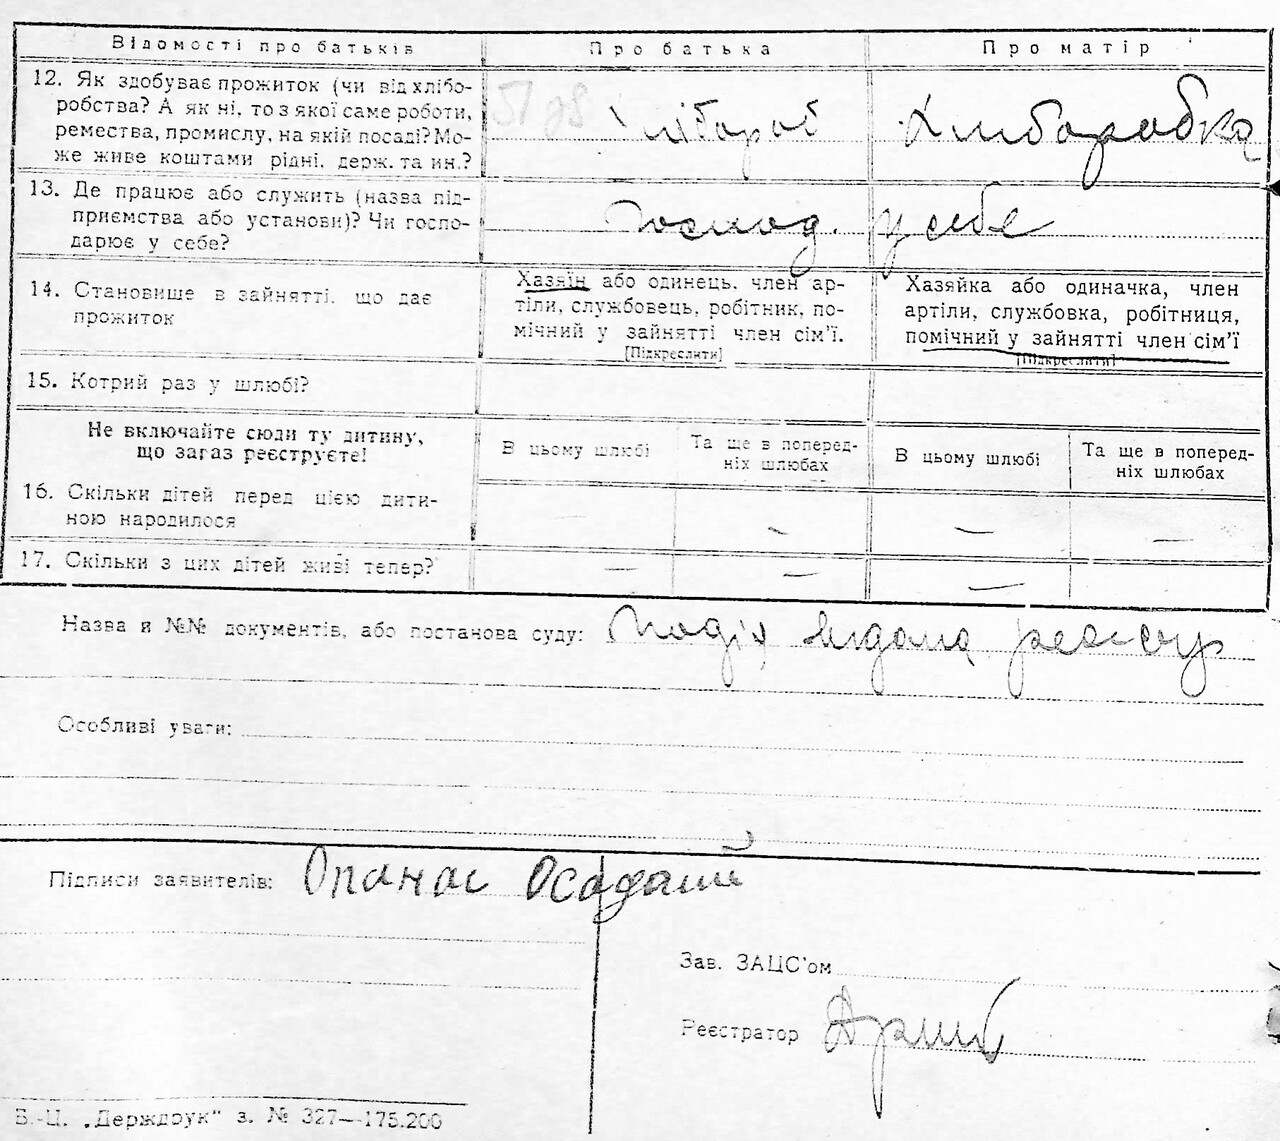 Відомості про батьків
Про батька
Про матір
12. Як здобуває прожиток (чи від хлібо-
робства? А як ні, то з якої саме роботи,
ремества, промислу, на якій посаді? Мо-
же живе коштами рідні, держ. та ин.?
Хлібороб
Хліборобка
13. Де працює або служить (назва під-
приємства або установи)? Чи госпо-
дарює у себе?
Господ. у себе
14. Становише в зайнятті, що дає
прожиток
Хазяїн або одинець, член ар-
тіли, службовець, робітник, по-
мічний у зайнятті член сім'ї.
[Підкреслити]
Хазяйка або одиначка, член
артіли, службовка, робітниця,
помічний у зайнятті член сім'ї
[Підкреслити]
15. Котрий раз у шлюбі?
Не включайте сюди ту дитину,
що загаз реєструєте!
В цьому шлюбі
Та ще в поперед-
ніх шлюбах
В цьому шлюбі
Та ще в поперед-
ніх шлюбах
16. Скільки дітей перед цією дити-
ною народилося
— — — —
17. Скільки з цих дітей живі тепер?
— — —
Назва й №№ документів, або постанова суду:
Особливі уваги:
Підписи заявителів: Опанас Осадчий
Зав. ЗАЦС'ом
Реєстратор
Б.-Ц. „Держдрук" з. № 327—175.200